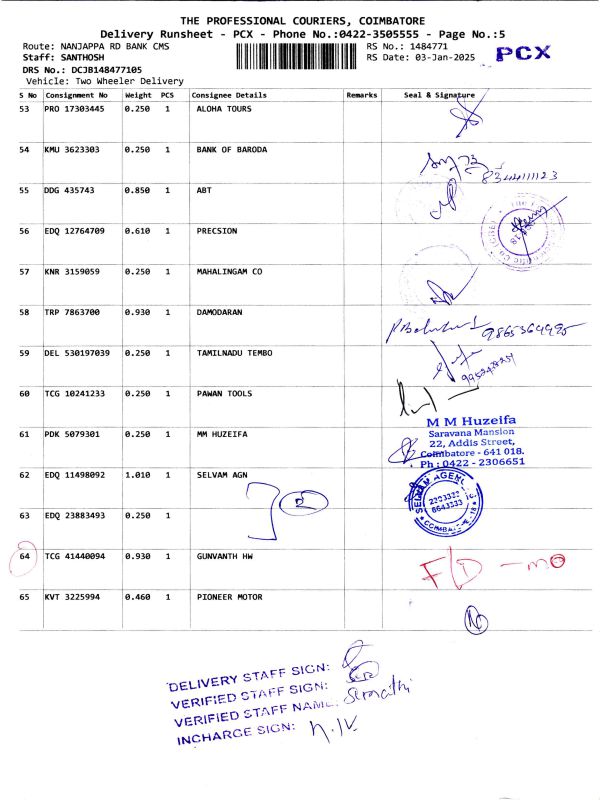 THE PROFESSIONAL COURIERS, COIMBATORE
Delivery Runsheet - PCX - Phone No.:0422-3505555 - Page No.:5
Route: NANJAPPA RD BANK CMS RS No.: 1484771
Staff: SANTHOSH RS Date: 03-Jan-2025 PCX
DRS No.: DCJB148477105
Vehicle: Two Wheeler Delivery
S No Consignment No Weight PCS Consignee Details Remarks Seal & Signature
53 PRO 17303445 0.250 1 ALOHA TOURS
54 KMU 3623303 0.250 1 BANK OF BARODA
55 DDG 435743 0.850 1 ABT
56 EDQ 12764709 0.610 1 PRECSION
57 KNR 3159059 0.250 1 MAHALINGAM CO
58 TRP 7863700 0.930 1 DAMODARAN
59 DEL 530197039 0.250 1 TAMILNADU TEMBO
60 TCG 10241233 0.250 1 PAWAN TOOLS
M M Huzeifa
61 PDK 5079301 0.250 1 MM HUZEIFA Saravana Mansion
22, Addis Street,
Coimbatore - 641 018.
Ph : 0422 - 2306651
62 EDQ 11498092 1.010 1 SELVAM AGN
2
63 EDQ 23883493 0.250 1
64 TCG 41440094 0.930 1 GUNVANTH HW F/D - mo
65 KVT 3225994 0.460 1 PIONEER MOTOR
DELIVERY STAFF SIGN:
VERIFIED STAFF SIGN:
VERIFIED STAFF NAME:
INCHARGE SIGN: